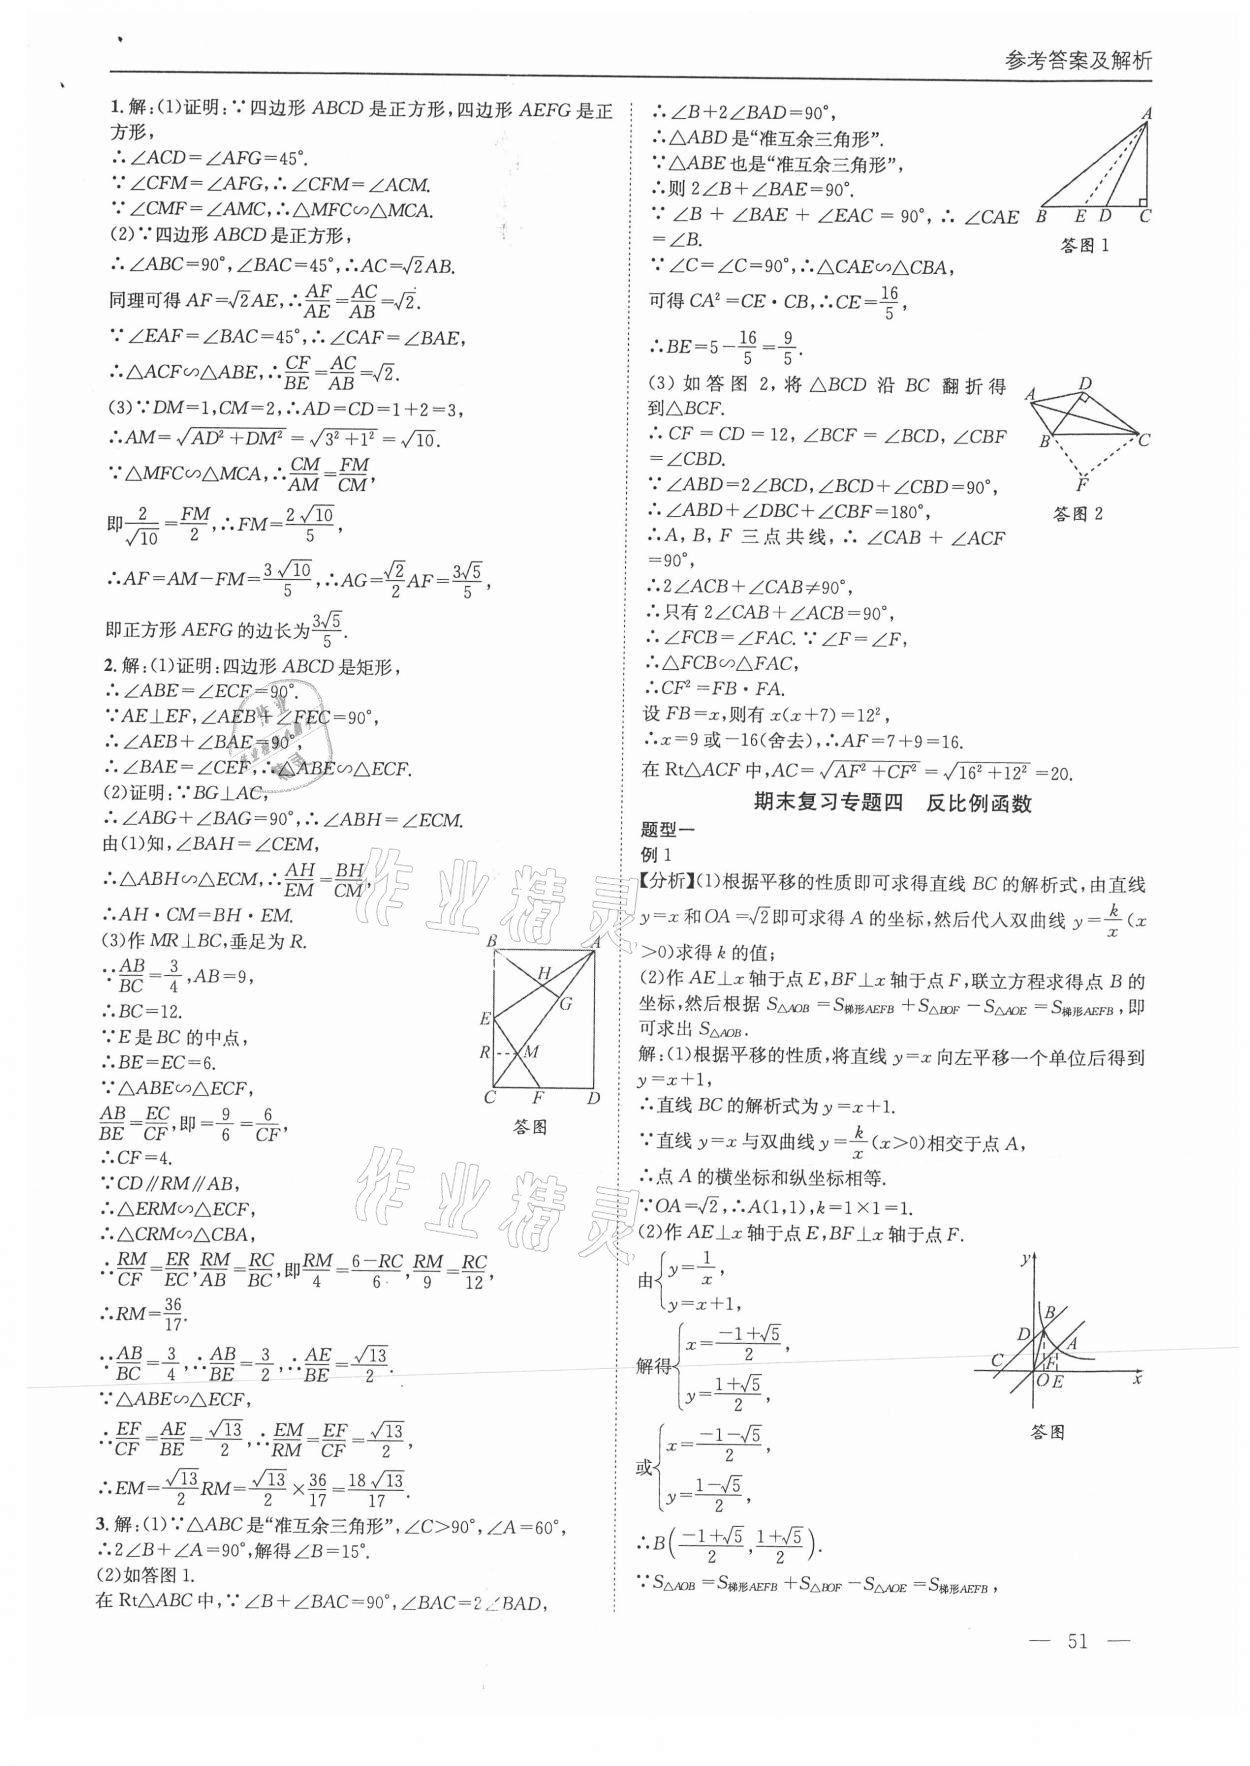 参考答案及解析
1.解:(1)证明:∵四边形 ABCD 是正方形,四边形 AEFG 是正
方形,
∴∠ACD=∠AFG=45°.
∵∠CFM=∠AFG,∴∠CFM=∠ACM.
∵∠CMF=∠AMC,∴△MFC∽△MCA.
(2)∵四边形 ABCD 是正方形,
∴∠ABC=90°,∠BAC=45°,∴AC=√2AB.
同理可得 AF=√2AE,∴AF/AE=AC/AB=√2.
∵∠EAF=∠BAC=45°,∴∠CAF=∠BAE,
∴△ACF∽△ABE,∴CF/BE=AC/AB=√2.
(3)∵DM=1,CM=2,∴AD=CD=1+2=3,
∴AM=√(AD²+DM²)=√(3²+1²)=√10.
∵△MFC∽△MCA,∴CM/AM=FM/CM,
即2/√10=FM/2,∴FM=2√10/5,
∴AF=AM-FM=3√10/5,∴AG=√2/2AF=3√5/5,
即正方形 AEFG 的边长为3√5/5.
2.解:(1)证明:四边形 ABCD 是矩形,
∴∠ABE=∠ECF=90°.
∵AE⊥EF,∠AEB+∠FEC=90°,
∴∠AEB+∠BAE=90°,
∴∠BAE=∠CEF,∴△ABE∽△ECF.
(2)证明:∵BG⊥AC,
∴∠ABG+∠BAG=90°,∴∠ABH=∠ECM.
由(1)知,∠BAH=∠CEM,
∴△ABH∽△ECM,∴AH/EM=BH/CM,
∴AH·CM=BH·EM.
(3)作 MR⊥BC,垂足为 R.
∵AB/BC=3/4,AB=9,
∴BC=12.
∵E 是 BC 的中点,
∴BE=EC=6.
∵△ABE∽△ECF,
AB/BE=EC/CF,即=9/6=6/CF,
∴CF=4.
∵CD∥RM∥AB,
∴△ERM∽△ECF,
∴△CRM∽△CBA,
∴RM/CF=ER/EC,RM/AB=RC/BC,即RM/4=6-RC/6,RM/9=RC/12,
∴RM=36/17.
∵AB/BC=3/4,∴AB/BE=3/2,∴AE/BE=√13/2.
∵△ABE∽△ECF,
∴EF/CF=AE/BE=√13/2,∵EM/RM=EF/CF=√13/2,
∴EM=√13/2RM=√13/2×36/17=18√13/17.
B A H G E R M C F D
答图
3.解:(1)∵△ABC 是“准互余三角形”,∠C>90°,∠A=60°,
∴2∠B+∠A=90°,解得∠B=15°.
(2)如答图 1.
在 Rt△ABC 中,∵∠B+∠BAC=90°,∠BAC=2∠BAD,
∴∠B+2∠BAD=90°,
∴△ABD 是“准互余三角形”.
∵△ABE 也是“准互余三角形”,
∴则 2∠B+∠BAE=90°.
∵∠B+∠BAE+∠EAC=90°,∴∠CAE
=∠B.
∵∠C=∠C=90°,∴△CAE∽△CBA,
可得 CA²=CE·CB,∴CE=16/5,
∴BE=5-16/5=9/5.
A B E D C
答图 1
(3)如答图 2,将△BCD 沿 BC 翻折得
到△BCF.
∴CF=CD=12,∠BCF=∠BCD,∠CBF
=∠CBD.
∵∠ABD=2∠BCD,∠BCD+∠CBD=90°,
∴∠ABD+∠DBC+∠CBF=180°,
∴A,B,F 三点共线,∴∠CAB+∠ACF
=90°,
∴2∠ACB+∠CAB≠90°,
∴只有 2∠CAB+∠ACB=90°,
∴∠FCB=∠FAC.∵∠F=∠F,
∴△FCB∽△FAC,
∴CF²=FB·FA.
设 FB=x,则有 x(x+7)=12²,
∴x=9 或-16(舍去),∴AF=7+9=16.
在 Rt△ACF 中,AC=√(AF²+CF²)=√(16²+12²)=20.
A D B C F
答图 2
期末复习专题四 反比例函数
题型一
例 1
【分析】(1)根据平移的性质即可求得直线 BC 的解析式,由直线
y=x 和 OA=√2即可求得 A 的坐标,然后代人双曲线 y=k/x(x
>0)求得 k 的值;
(2)作 AE⊥x 轴于点 E,BF⊥x 轴于点 F,联立方程求得点 B 的
坐标,然后根据 S△AOB=S梯形AEFB+S△BOF-S△AOE=S梯形AEFB,即
可求出 S△AOB.
解:(1)根据平移的性质,将直线 y=x 向左平移一个单位后得到
y=x+1,
∴直线 BC 的解析式为 y=x+1.
∵直线 y=x 与双曲线 y=k/x(x>0)相交于点 A,
∴点 A 的横坐标和纵坐标相等.
∵OA=√2,∴A(1,1),k=1×1=1.
(2)作 AE⊥x 轴于点 E,BF⊥x 轴于点 F.
由{y=1/x,
y=x+1,
解得{x=-1+√5/2,
y=1+√5/2,
或{x=-1-√5/2,
y=1-√5/2,
∴B(-1+√5/2,1+√5/2).
∵S△AOB=S梯形AEFB+S△BOF-S△AOE=S梯形AEFB,
y B D A C F O E x
答图
作业精灵
作业精灵
— 51 —